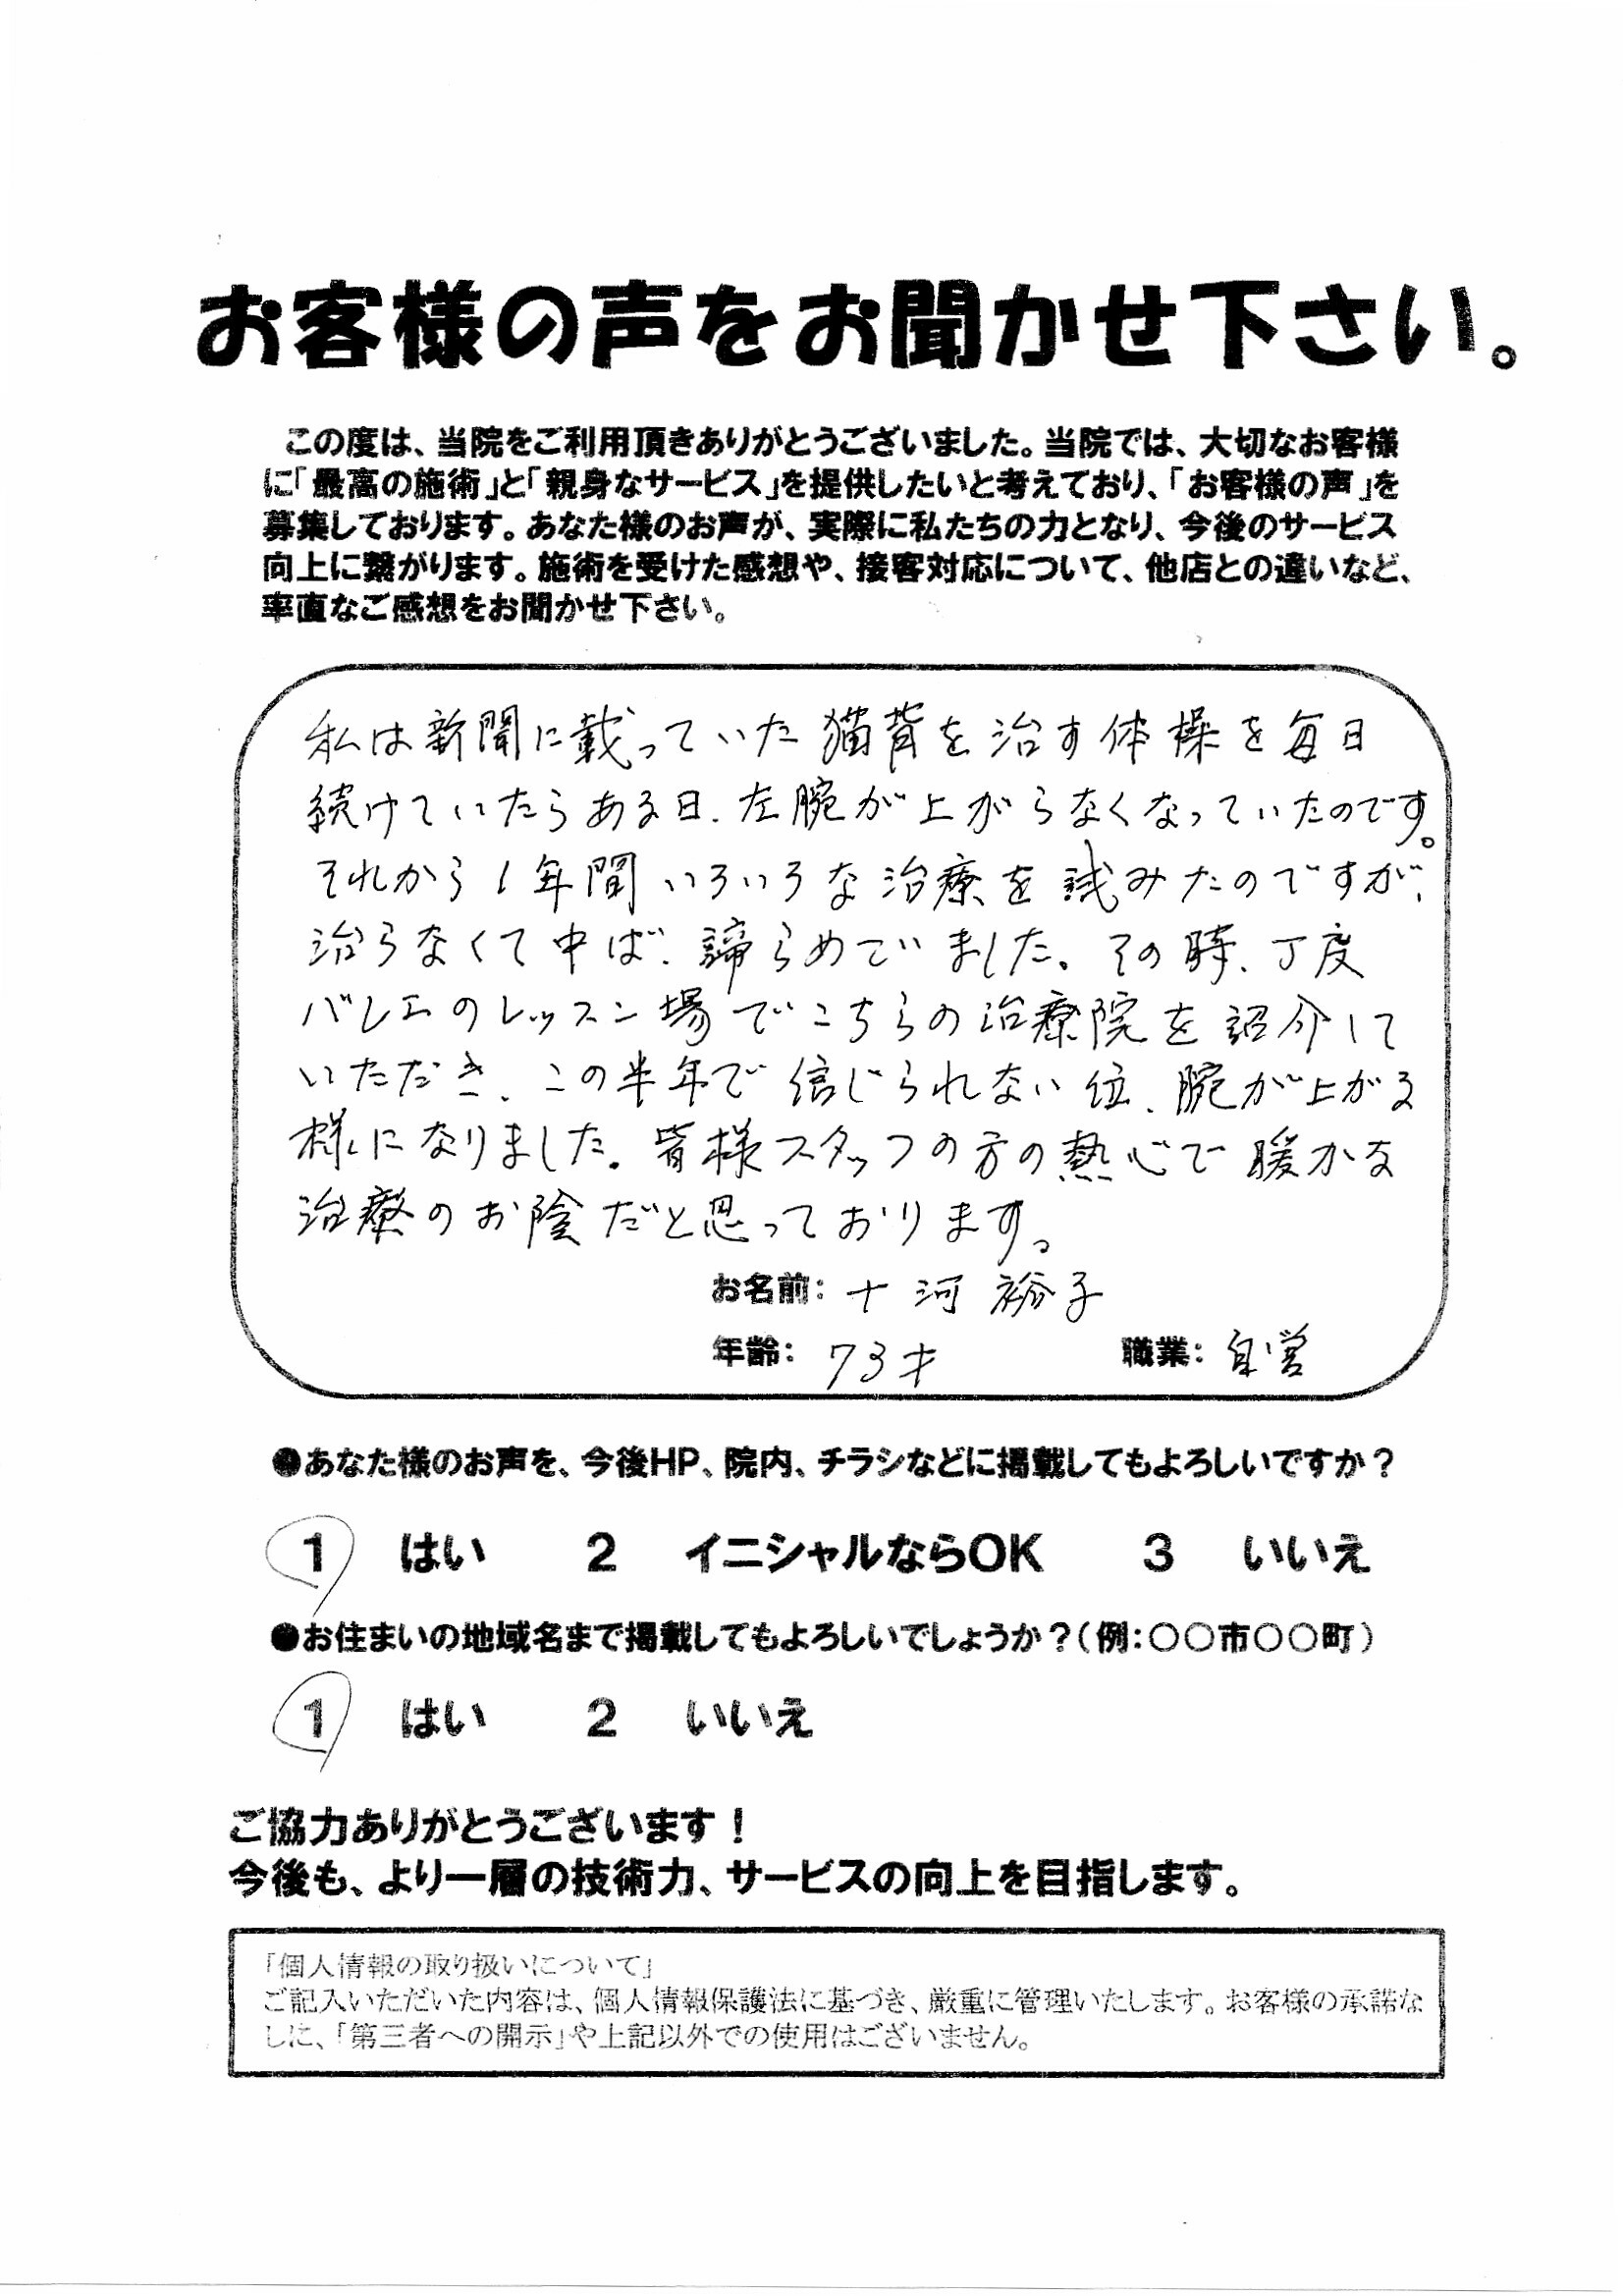 お客様の声をお聞かせ下さい。
この度は、当院をご利用頂きありがとうございました。当院では、大切なお客様
に「最高の施術」と「親身なサービス」を提供したいと考えており、「お客様の声」を
募集しております。あなた様のお声が、実際に私たちの力となり、今後のサービス
向上に繋がります。施術を受けた感想や、接客対応について、他店との違いなど、
率直なご感想をお聞かせ下さい。
私は新聞に載っていた猫背を治す体操を毎日
続けていたらある日、左腕が上がらなくなっていたのです。
それから1年間いろいろな治療を試みたのですが、
治らなくて中ば、諦らめていました。その時、丁度
バレエのレッスン場でこちらの治療院を紹介して
いただき、この半年で信じられない位、腕が上がる
様になりました。皆様スタッフの方の熱心で暖かな
治療のお陰だと思っております。
お名前：十河 裕子
年齢：73才 職業：自営
●あなた様のお声を、今後HP、院内、チラシなどに掲載してもよろしいですか？
1 はい 2 イニシャルならOK 3 いいえ
●お住まいの地域名まで掲載してもよろしいでしょうか？（例：〇〇市〇〇町）
1 はい 2 いいえ
ご協力ありがとうございます！
今後も、より一層の技術力、サービスの向上を目指します。
「個人情報の取り扱いについて」
ご記入いただいた内容は、個人情報保護法に基づき、厳重に管理いたします。お客様の承諾な
しに、「第三者への開示」や上記以外での使用はございません。